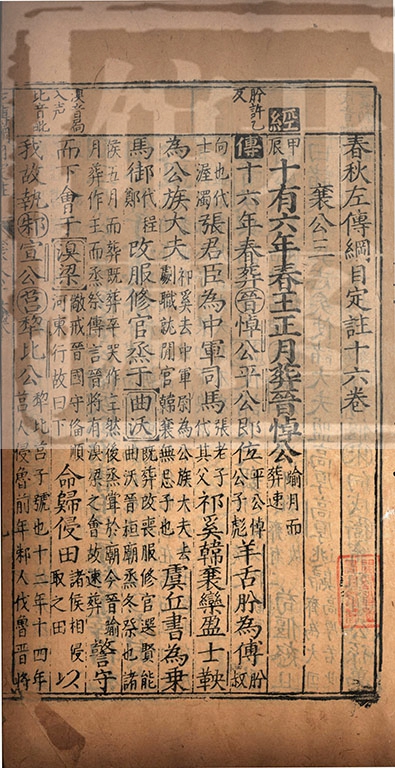 春秋左傳綱目定註十六卷
襄公三
經 甲辰 十有六年春王正月葬晉悼公 踰月而葬速
肸許乙反
傳 十六年春葬晉悼公平公即位 平公悼公子彪 羊舌肸為傅 肸叔
向也代士渥濁 張君臣為中軍司馬 張老子代其父 祁奚韓襄欒盈士鞅
為公族大夫 祁奚去中軍尉為公族大夫去劇職就閒官韓襄無忌子也 虞丘書為乘
馬御 代程鄭 改服修官烝于曲沃 既葬改喪服修官選賢能曲沃晉桓廟烝冬祭也諸
侯五月而葬既葬卒哭作主然後烝嘗於廟今晉踰月葬作主而烝祭傳言晉將有溴梁之會故速葬 警守
而下會于溴梁 敬戒晉國守俻順河東行故曰下 命歸侵田 諸侯相侵取之田 以
入声
比音毗
我故執邾宣公莒犂比公 犂比莒子號也十二年十四年莒人侵魯前年邾人伐魯晉將